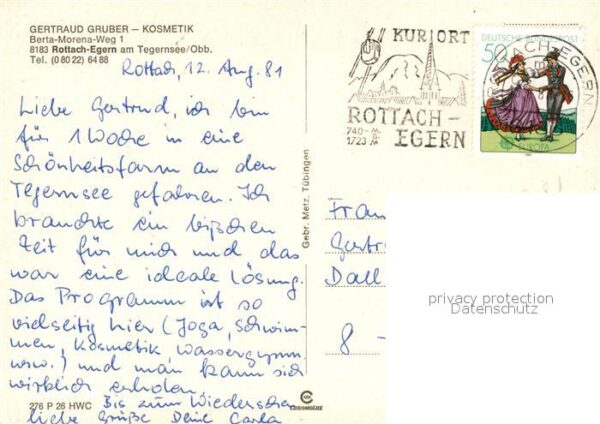 GERTRAUD GRUBER – KOSMETIK
Berta-Morena-Weg 1
8183 Rottach-Egern am Tegernsee/Obb.
Tel. (0 80 22) 64 88
Rottach, 12. Aug. 81
Liebe Gertrud, ich bin
für 1 Woche in eine
Schönheitsfarm an den
Tegernsee gefahren. Ich
brauchte ein bißchen
Zeit für mich und das
war eine ideale Lösung.
Das Programm ist so
vielseitig hier (Joga, Schwim-
men, Kosmetik, Wassergymn.
usw.) und man kann sich
wirklich erholen.
Bis zum Wiedersehen
liebe Grüße Deine Carla
276 P 26 HWC
Gebr. Metz, Tübingen
KURORT
ROTTACH-
EGERN
740-
1723
DEUTSCHE BUNDESPOST
50
EUROPA
ROTTACH-EGERN
Frau
Gertr
Dall
8 -
privacy protection
Datenschutz